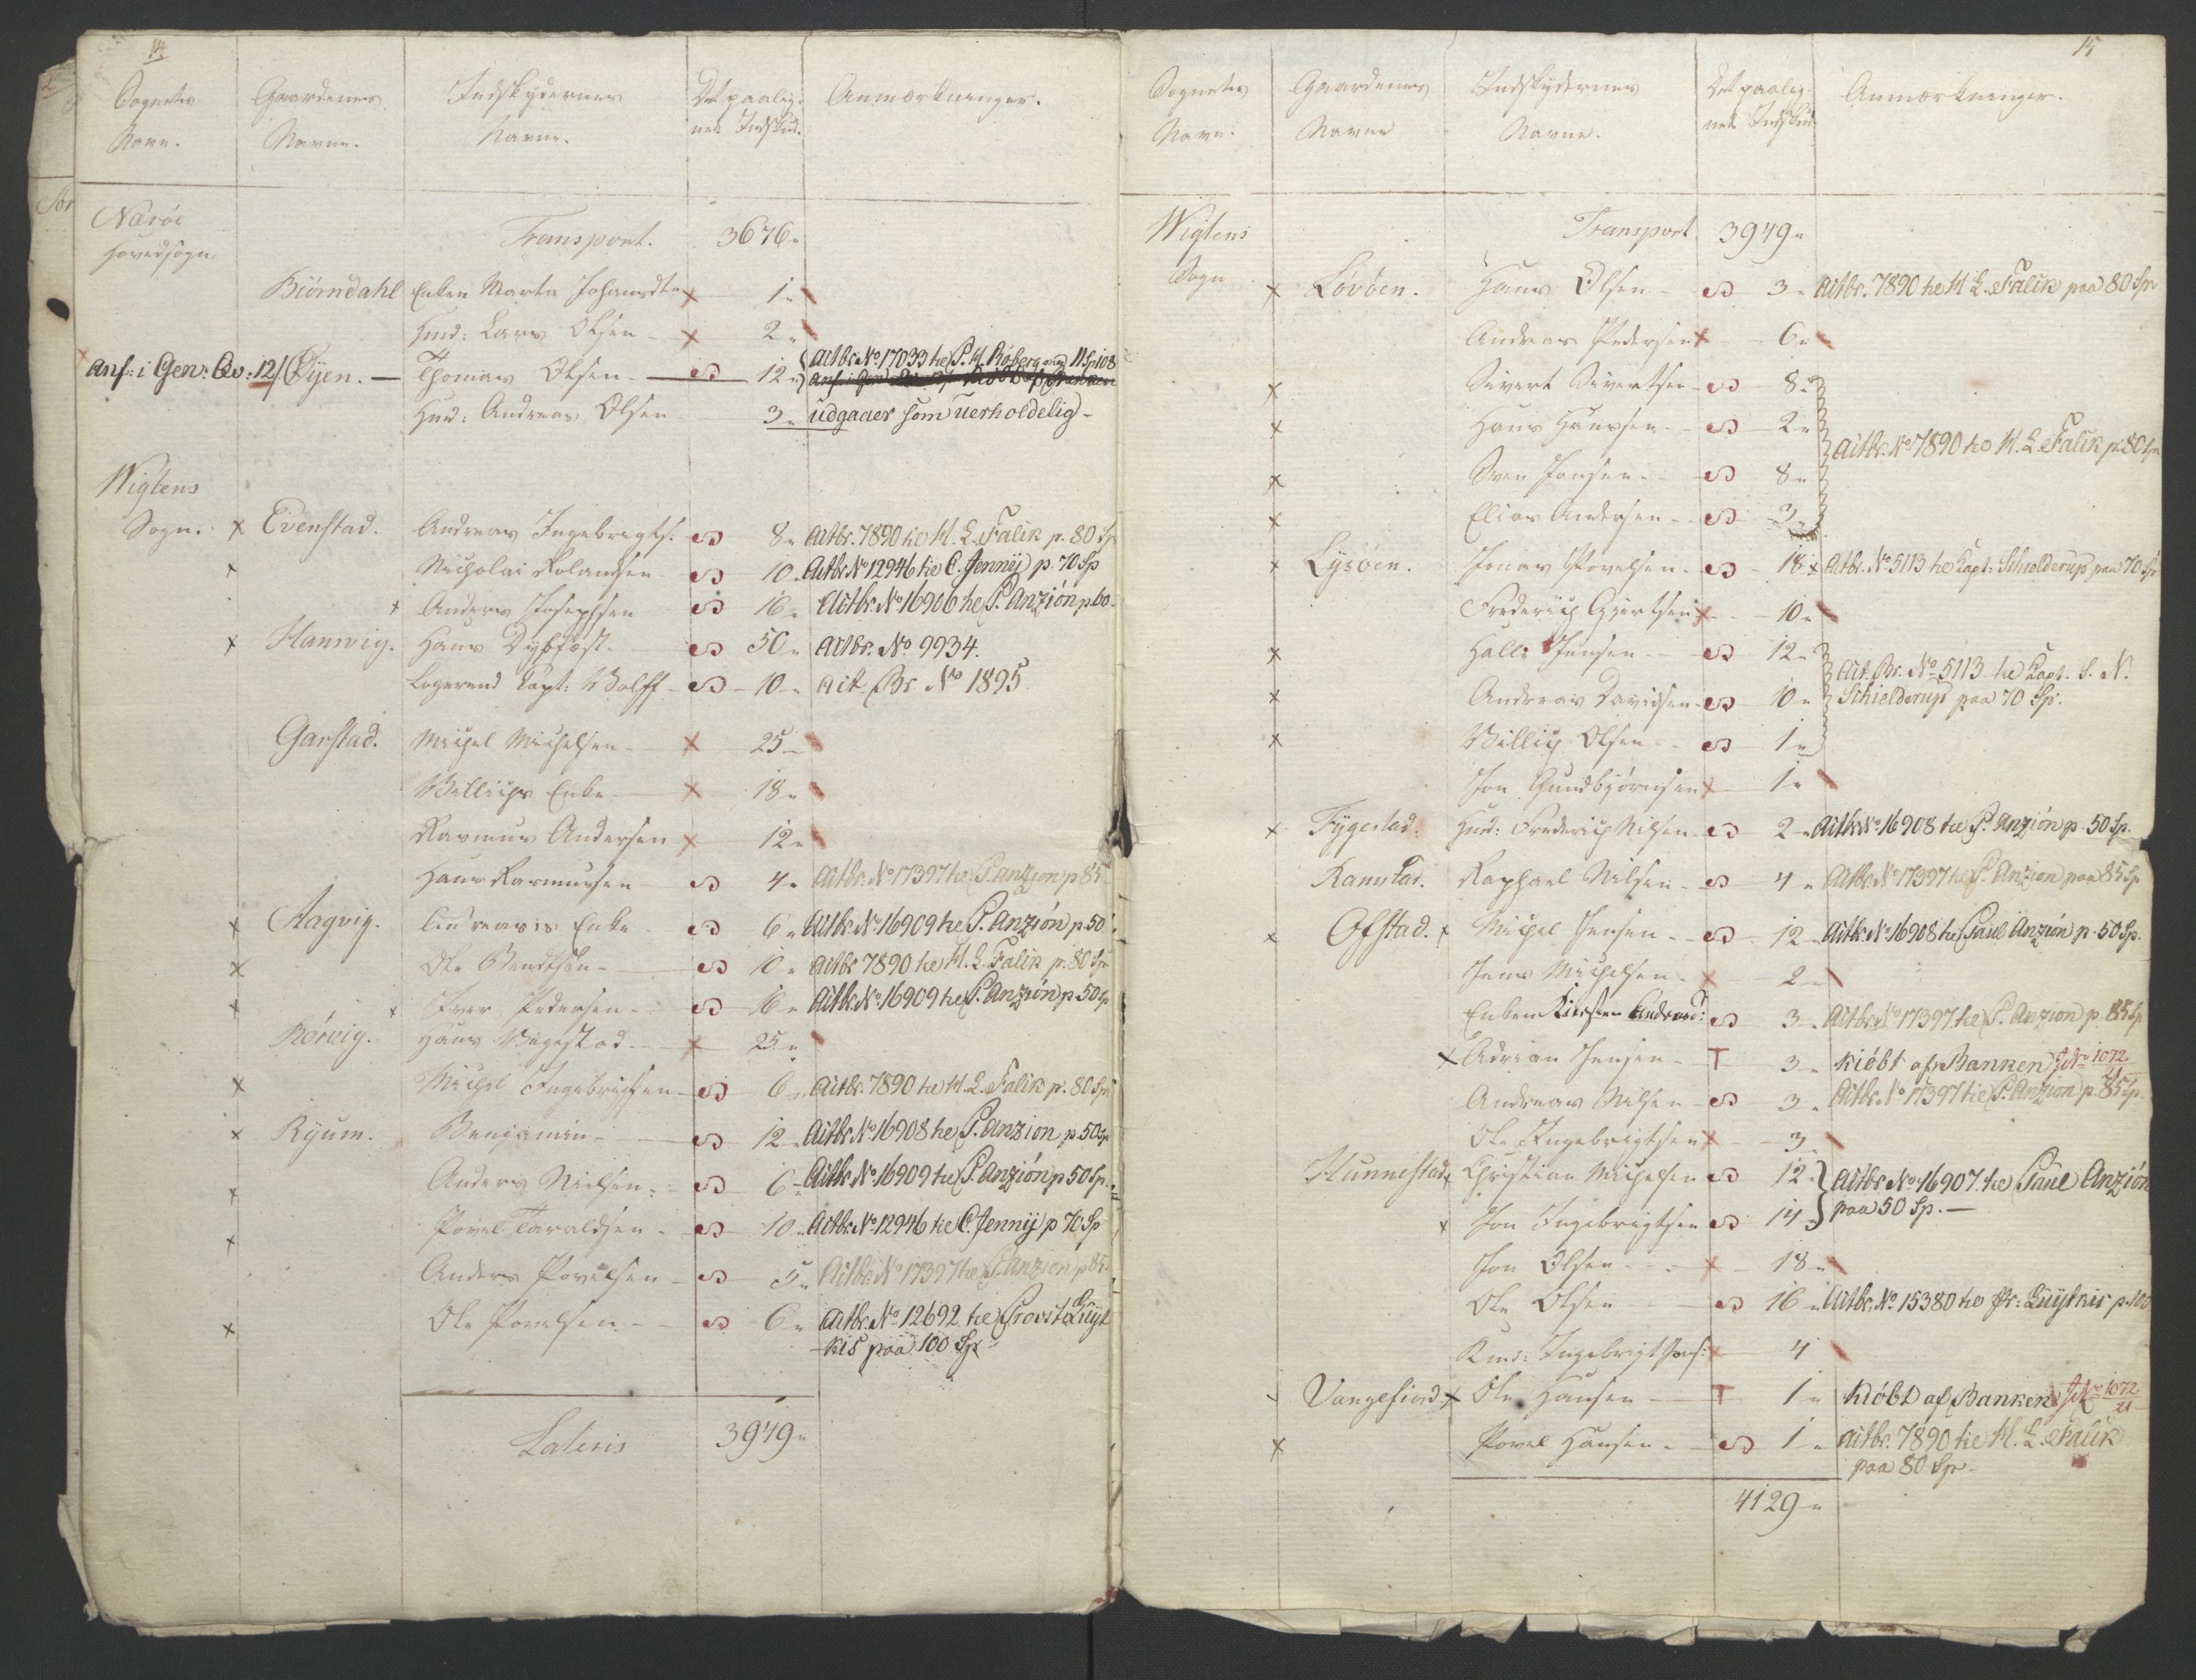 14
Sognets Navn. Gaardenes Navne. Indskydernes Navne. Det paalignede Indskud. Anmærkninger.
Nærøe Hovedsogn.
Transport. 3676 "
Biörndahl Enken Marta Johansdtr x 1 "
Huusm: Lars Olsen x 2 "
x Anf: i Gen: Qv: 12/ Öyen. — Thomas Olsen — S 12 " Actbr. No 17033 til P. H. Röberg
Huusm: Andreas Olsen 3 " udgaaer som uerholdelig -
Wigtens Sogn. x Evenstad. Andreas Ingebrigts. S 8 " Actbr. 7890 til H. L. Falck p. 80 Sp
x Nicholai Rolandsen S 10 " Actbr No 12946 til C. Jenny p. 70 Sp
x Anders Josephsen S 16 " Actbr. No 16906 til P. Anzión p 60
x Hansvig. Hans Dybfest. S 50 " Actbr. No 9934.
Logerend Capt: Wolff S 10 " Act. Br. No 1895
Garstad. Michel Michelsen x 25 "
Willichs Enke x 18 "
Rasmus Andersen x 12 "
Hans Rasmussen S 4 " Actbr. No 17397 til P. Anzion p 85
x Aagvig. Andreasis Enke S 6 " Actbr. No 16909 til P. Anzión p. 50
x Ole Bendtsen S 10 " Actbr 7890 til H. L. Falck p. 80 Sp
x Iver Pedersen S 16 " Actbr. No 16909 til P. Anzión p 50 Sp
Rörvig. Hans Wigestad x 25 "
x Michel Ingebrigtsen S 6 " Actbr. 7890 til H. L. Falck p. 80 Sp
x Ryum. Benjamin S 12 " Actbr. No 16908 til P. Anzion p. 50 Sp
x Anders Nielsen S 6 " Actbr. No 16909 til P. Anzión p 50 Sp.
x Povel Taraldsen S 10 " Actbr. No 12946 til C. Jenny p 70 Sp
Anders Povelsen S 5 " Actbr. No 17397 til P. Anzion p 85
x Ole Povelsen S 6 " Actbr. No 12692 til Provst Luyt
-kis paa 100 Sp
Lateris 3949 "
15
Sognets Navn. Gaardenes Navne Indskydernes Navne. Det paalignede Indskud. Anmærkninger.
Wigtens Sogn
Transport 3949 "
x Lövöen. Hans Olsen S 3 " Actbr. 7890 til H. L. Falck paa 80 Sp
Andreas Pedersen x 6 "
x Sivert Sivertsen S 8 "
x Hans Hansen S 2 "
Actbr. No 7890 til H. L. Falck p. 80 Sp
x Sven Jonsen S 8 "
x Elias Andersen S 3 "
x Lysöen. Jonas Povelsen S 18 " Actbr. No 5113 til Capt: Schielderup paa 70 Sp
Frederich Gjertsen x 10 "
x Halle Jensen S 12 "
Act. Br. No 5113 til Capt. S. N.
x Andreas Davidsen S 10 " Schielderup paa 70 Sp.
x Willich Olsen S 1 "
Jon Gundbjörnsen x 1 "
x Fygestad. Huusm: Frederich Nilsen S 2 " Actbr No 16908 til P. Anzión p. 50 Sp.
Ramstad. Raphael Nilsen S 4 " Actbr. No 17397 til P. Anzion paa 85 Sp
x Ofstad. x Michel Jensen S 12 " Actbr No 16908 til Paul Anzión p. 50 Sp.
Jens Michelsen x 2 "
Enken Kirsten Andread: S 3 " Actbr. No 17397 til P. Anzion p. 85 Sp
x Adrian Jensen T 3 " kiöbt af Banken J No 1072/21
Andreas Nilsen S 3 " Actbr. No 17397 til P. Anzion p. 85 Sp.
Ole Ingebrigtsen x 3 "
Hunnestad x Christian Michelsen S 12 " Actbr No 16907 til Paul Anzión
x Jon Ingebrigtsen S 14 paa 50 Sp. —
Jon Olsen x 18 "
Ole Olsen S 16 " Actbr. No 15380 til Pr: Luytkis p. 100
Huusm: Ingebrigt Jons: x 4
x Vangsfiord. x Ole Hansen T 1 " Kiöbt af Banken J No 1072/21
x Povel Hansen S 1 " Actbr. 7890 til H. L. Falck
paa 80 Sp.
4129 "